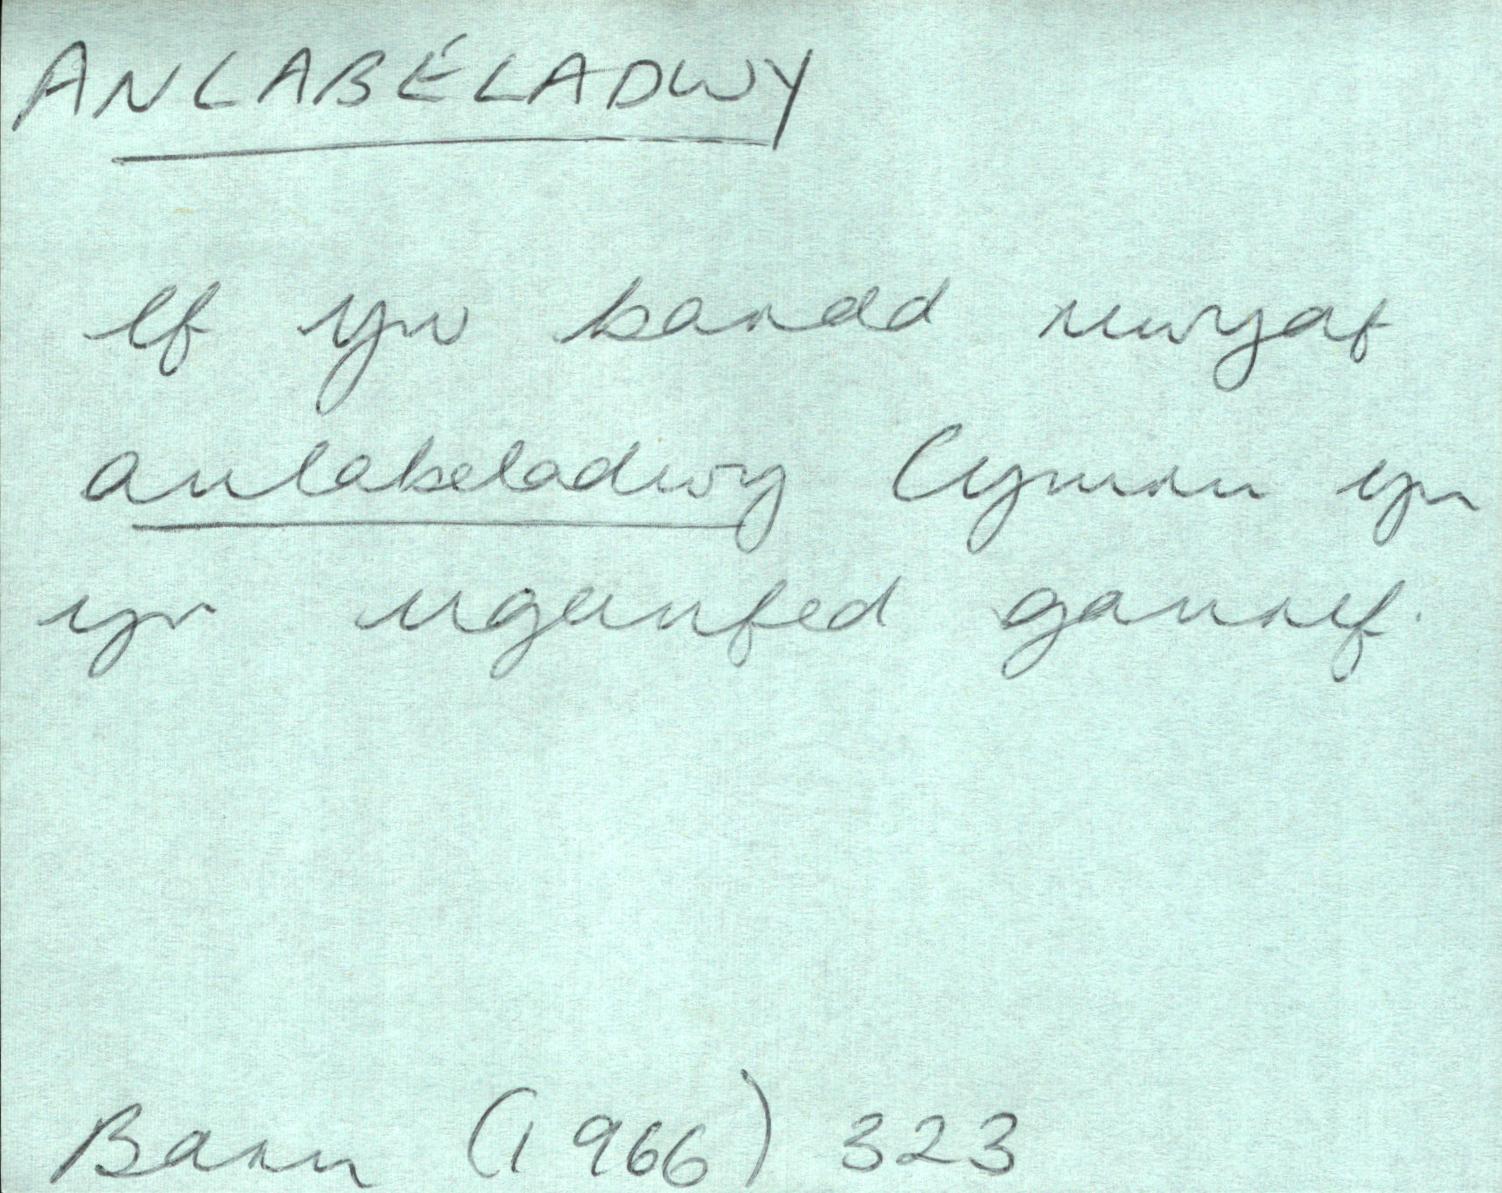 ANLABELADWY
Ef yw bardd mwyaf
anlabeladwy Cymru yn
yr ugeinfed ganrif.
Barn (1966) 323